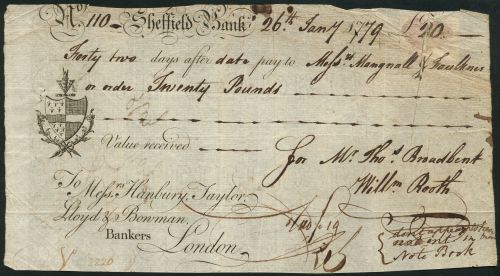 No. 110 — Sheffield Bank 26th Jany 1779 £20 —
Forty two days after date pay to Messrs Mangnall & Faulkner
or order Twenty Pounds
Value received
for Mr. Thos. Broadbent
Willm Booth
To Messrs Hanbury, Taylor,
Lloyd & Bowman,
Bankers London
Note Book